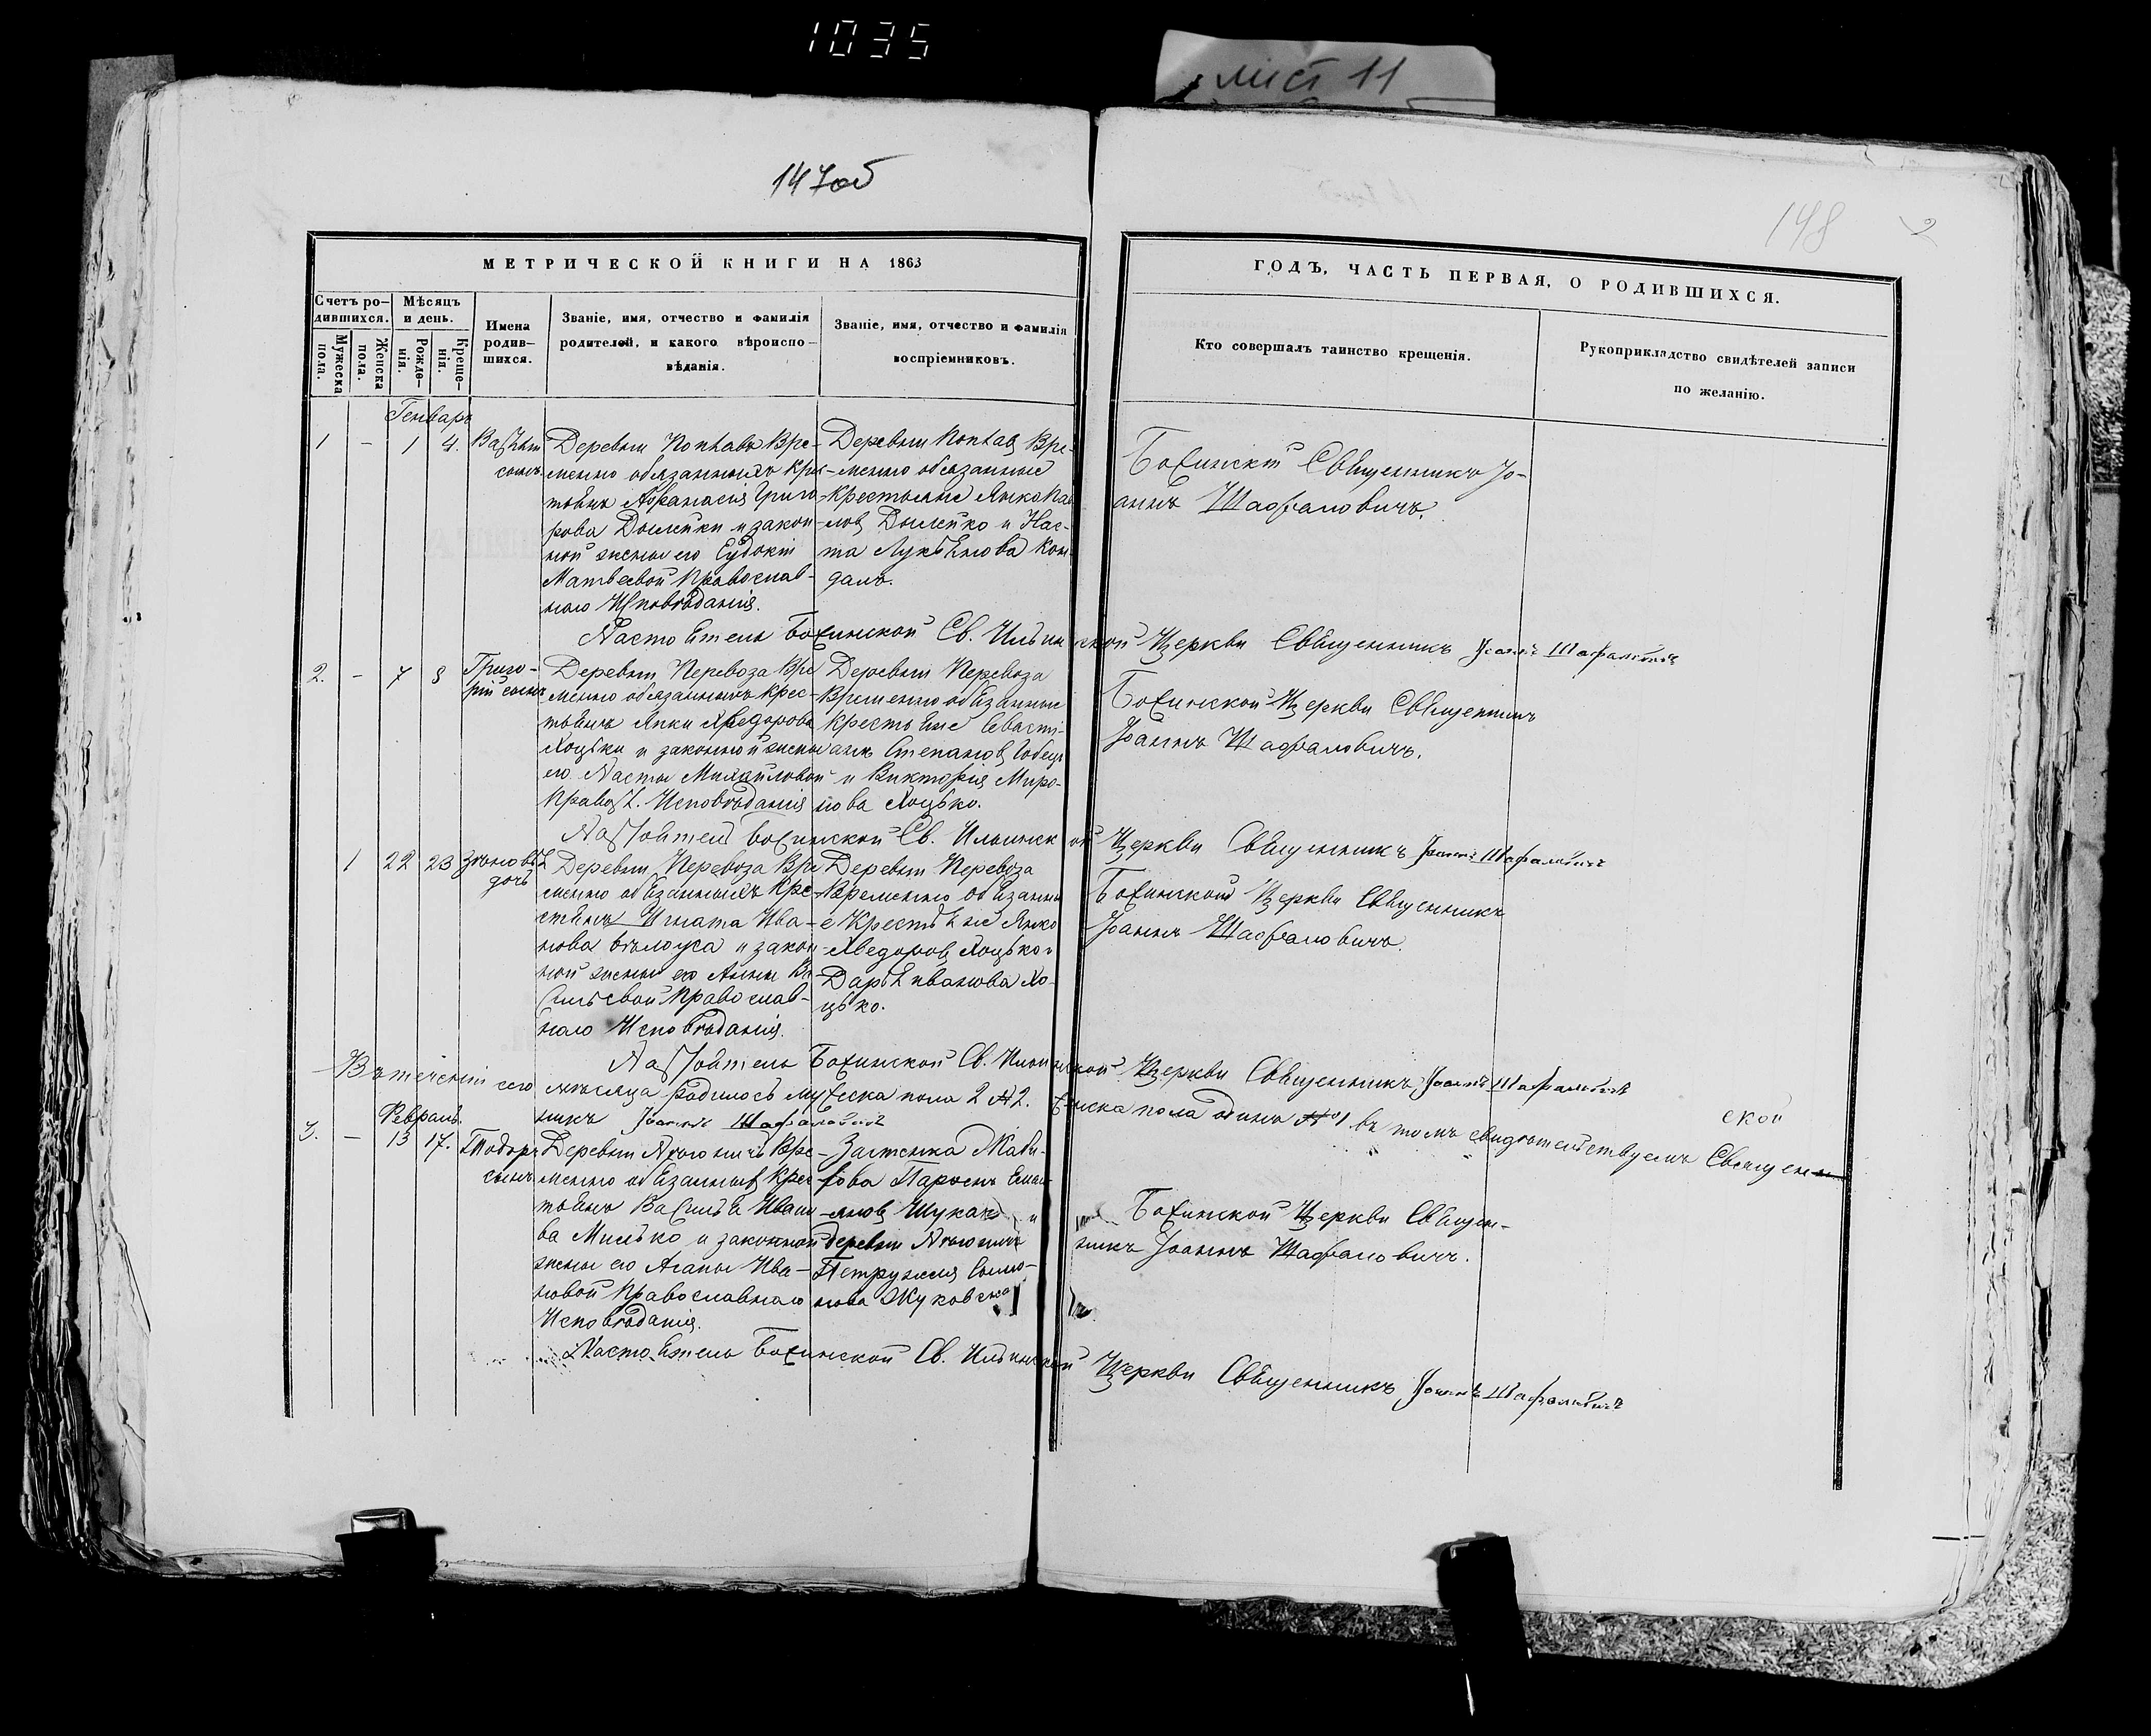 1035
лист 11
147об
148
МЕТРИЧЕСКОЙ КНИГИ НА 1863
ГОДЪ, ЧАСТЬ ПЕРВАЯ, О РОДИВШИХСЯ.
Счетъ ро-
дившихся.
Мужеска
пола.
Женска
пола.
Мѣсяцъ
и день.
Рожде-
нія.
Креще-
нія.
Имена
родив-
шихся.
Званіе, имя, отчество и фамилія
родителей, и какого вѣроиспо-
вѣданія.
Званіе, имя, отчество и фамилія
воспріемниковъ.
Кто совершалъ таинство крещенія.
Рукоприкладство свидѣтелей записи
по желанію.
Генварь
1 - 1 4.
сынъ
Деревни Вре-
менно обязанныхъ крес-
тьянъ Афанасія Григо-
рова и закон-
ной жены его Евдокіи
Матвеевой Православ-
наго Исповѣданія.
Деревни Вре-
менно обязанные
Крестьяне Янко Пав-
ловъ и Нас-
та Лукьянова Кон-
далъ.
Священникъ Іо-
аннъ Шафаловичъ.
Настоятель Св. Ильинской Церкви Священникъ Іоаннъ Шафаловичъ
2. - 7 8
Григо-
рій сынъ
Деревни Перевоза Вре
менно обязанныхъ крес-
тьянъ Янки Хведорова
Хоцьки и законной жены
его Насты Михайловой
Правос. Исповѣданія
Деревни Перевоза
Временно обязанные
Крестьяне Севасті-
анъ Степановъ
и Викторія Миро-
нова Хоцько.
Церкви Священникъ
Іоаннъ Шафаловичъ.
Настоятель Св. Ильинской Церкви Священникъ Іоаннъ Шафаловичъ
1 22 23
дочь
Деревни Перевоза Вре
менно обязанныхъ Кре-
стьянъ Игната Ива-
нова Бѣлоуса и закон-
ной жены его Анны Ва-
сильевой Православ-
наго Исповѣданія.
Деревни Перевоза
Временно обязанны
е Крестьяне Янко
Хведоровъ Хоцько и
Дарья Иванова Хо-
цько.
Церкви Священникъ
Іоаннъ Шафаловичъ.
Настоятель Св. Ильинской Церкви Священникъ Іоаннъ Шафаловичъ
Въ теченіи сего мѣсяца родилось мужеска пола 2 №2. женска пола одинъ №1 въ томъ свидѣтельствуемъ Священ
никъ Іоаннъ Шафаловичъ
ской
Февраль.
3. - 13 17.
Тодоръ
сынъ
Деревни Вре-
менно обязанныхъ Крес
тьянъ Василья Ивано
ва Милько и законной
жены его Агапы Ива-
новой Православнаго
Исповѣданія.
Застенка
Парѳенъ Емель-
яновъ Шукан и
деревни
Петрунеля Семіо-
нова Жуковска
Церкви Священ-
никъ Іоаннъ Шафаловичъ.
Настоятель Св. Ильинской Церкви Священникъ Іоаннъ Шафаловичъ